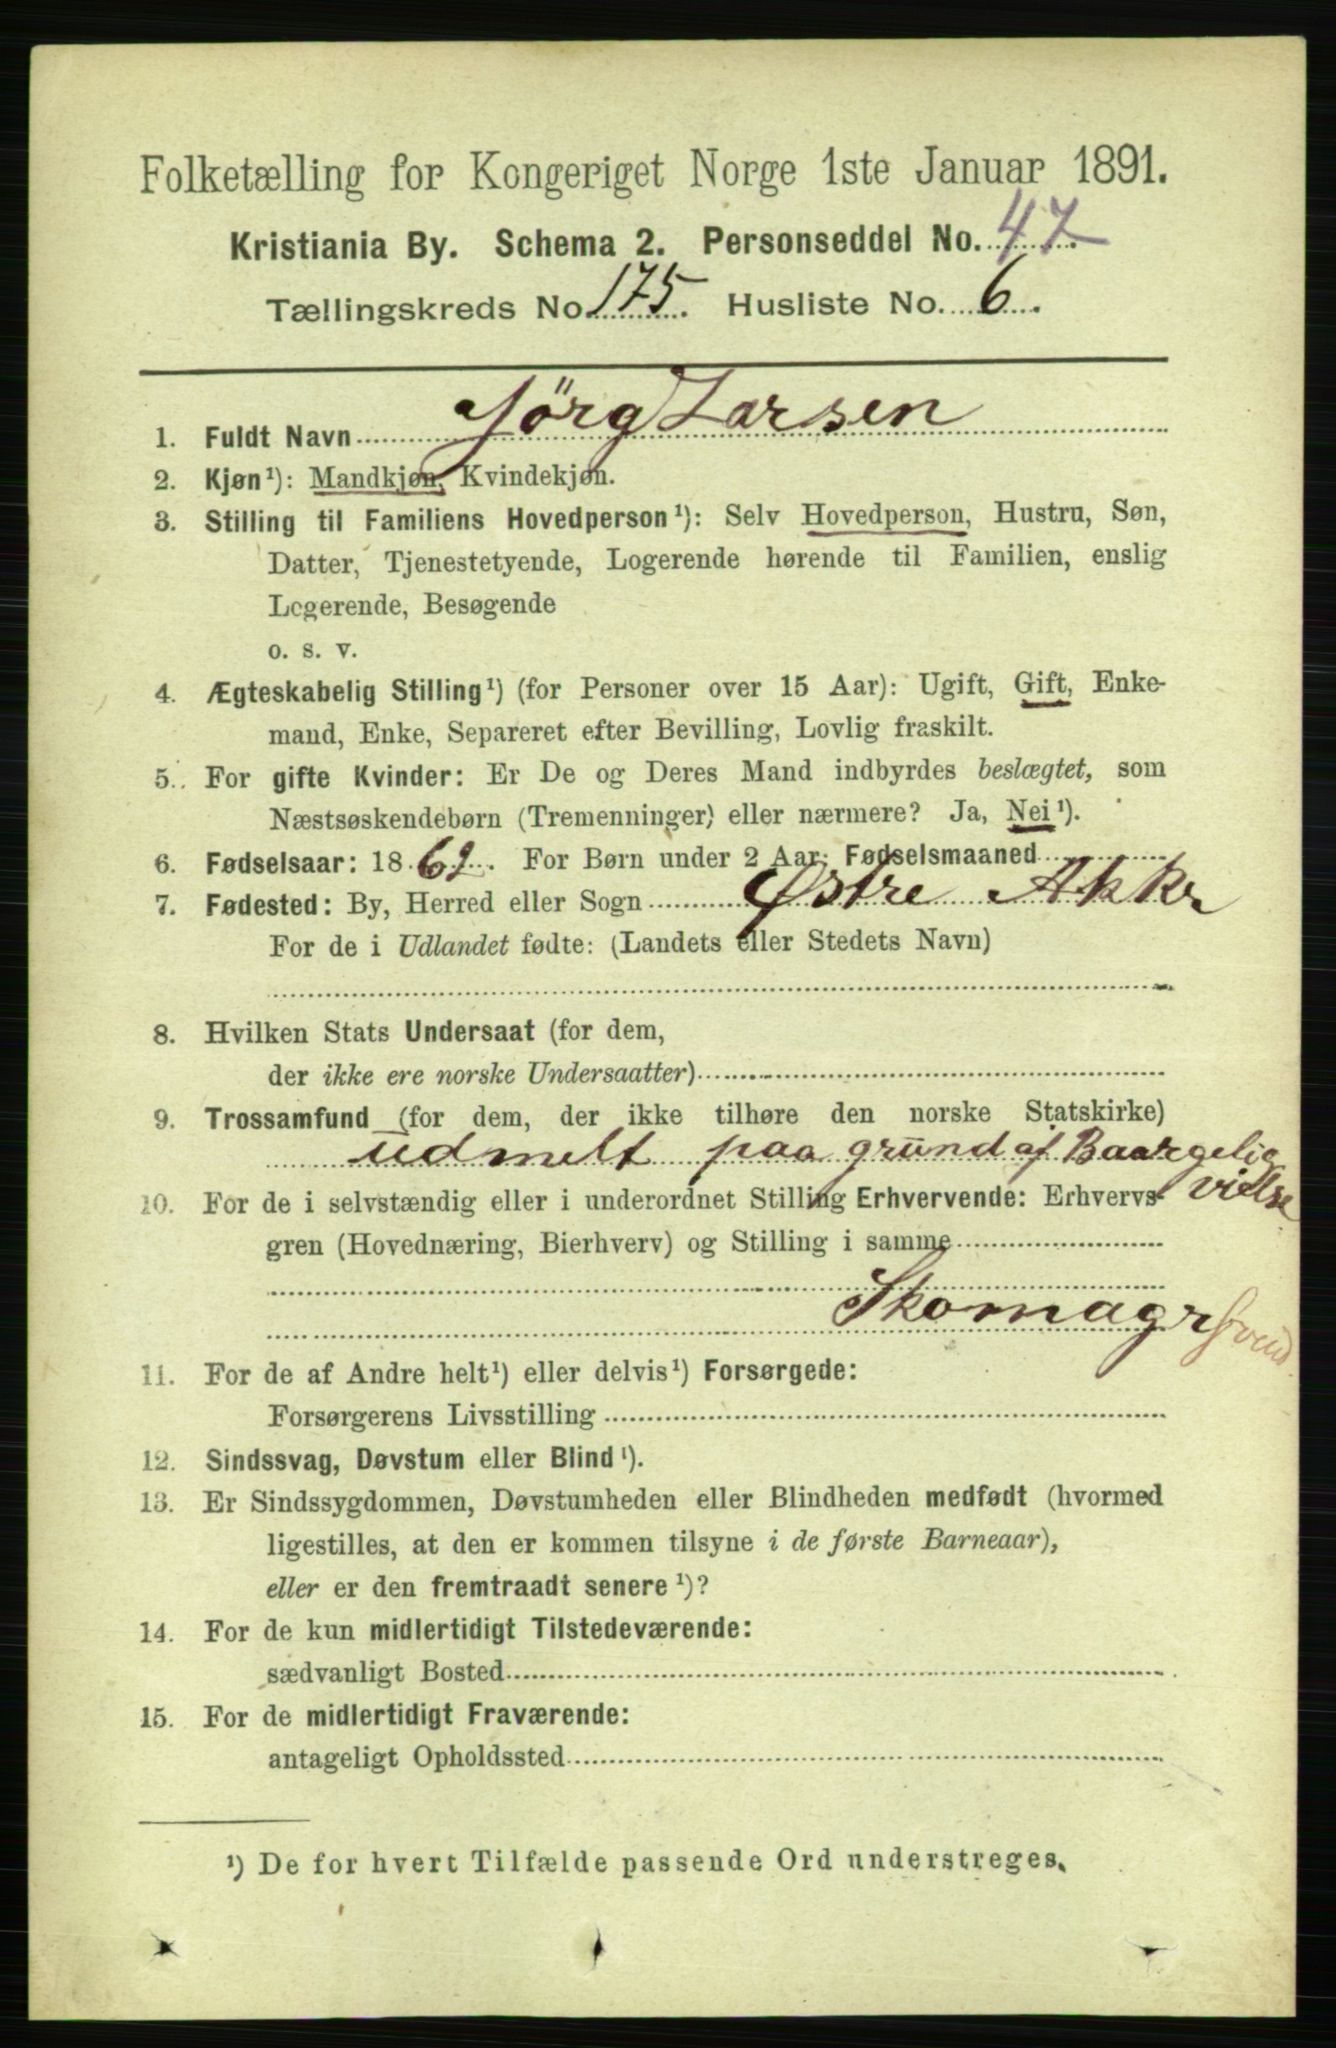 Folketælling for Kongeriget Norge 1ste Januar 1891.
Kristiania By. Schema 2. Personseddel No. 47.
Tællingskreds No. 175. Husliste No. 6.
1. Fuldt Navn Jörg Larsen
2. Kjøn¹): Mandkjøn, Kvindekjøn.
3. Stilling til Familiens Hovedperson¹): Selv Hovedperson, Hustru, Søn,
Datter, Tjenestetyende, Logerende hørende til Familien, enslig
Logerende, Besøgende
o. s. v.
4. Ægteskabelig Stilling¹) (for Personer over 15 Aar): Ugift, Gift, Enke-
mand, Enke, Separeret efter Bevilling, Lovlig fraskilt.
5. For gifte Kvinder: Er De og Deres Mand indbyrdes beslægtet, som
Næstsøskendebørn (Tremenninger) eller nærmere? Ja, Nei¹).
6. Fødselsaar: 1862. For Børn under 2 Aar: Fødselsmaaned
7. Fødested: By, Herred eller Sogn Østre Akkr
For de i Udlandet fødte: (Landets eller Stedets Navn)
8. Hvilken Stats Undersaat (for dem,
der ikke ere norske Undersaatter)
9. Trossamfund (for dem, der ikke tilhøre den norske Statskirke)
udmelt paa grund af Baargelig
vielse
10. For de i selvstændig eller i underordnet Stilling Erhvervende: Erhvervs-
gren (Hovednæring, Bierhverv) og Stilling i samme
Skomagrsvend
11. For de af Andre helt¹) eller delvis¹) Forsørgede:
Forsørgerens Livsstilling
12. Sindssvag, Døvstum eller Blind¹).
13. Er Sindssygdommen, Døvstumheden eller Blindheden medfødt (hvormed
ligestilles, at den er kommen tilsyne i de første Barneaar),
eller er den fremtraadt senere¹)?
14. For de kun midlertidigt Tilstedeværende:
sædvanligt Bosted
15. For de midlertidigt Fraværende:
antageligt Opholdssted
¹) De for hvert Tilfælde passende Ord understreges.